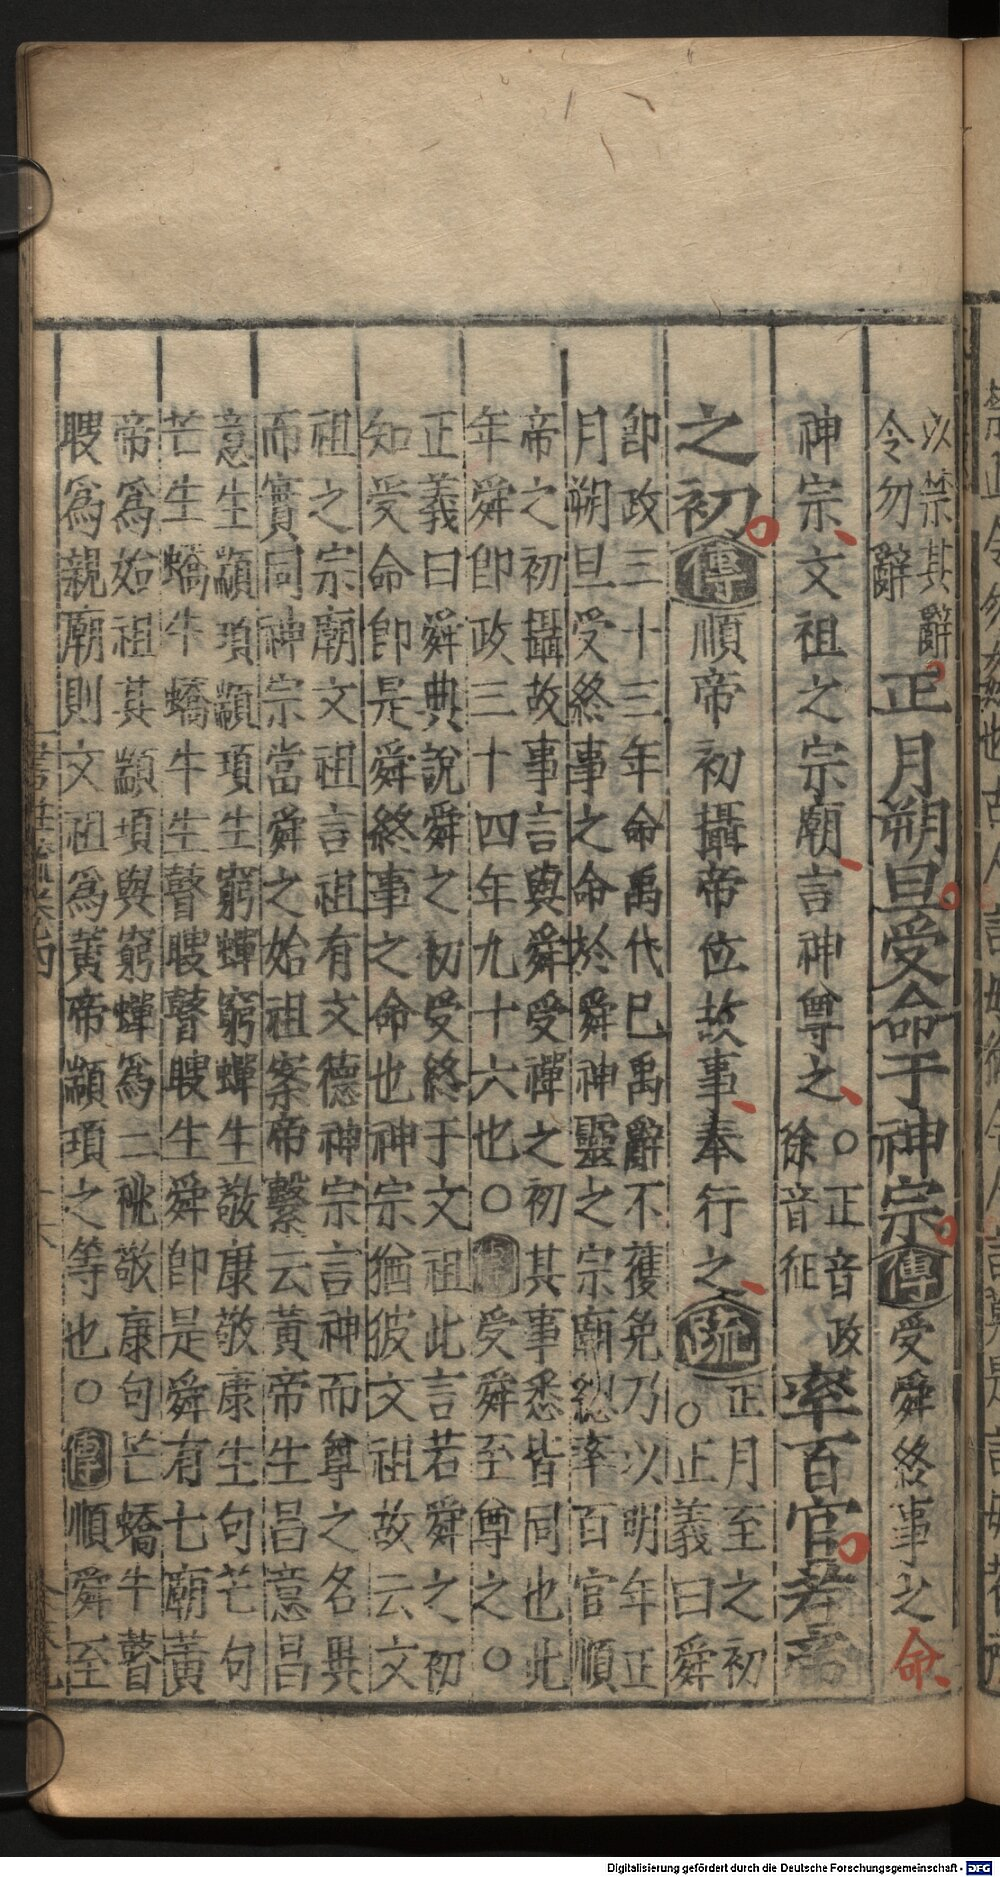 以禁其辭
令勿辭
正月朔旦受命于神宗傳受舜終事之命
神宗文祖之宗廟言神尊之
○正音政
徐音征
率百官若帝
之初傳順帝初攝帝位故事奉行之疏
正月至之初
○正義曰舜
即政三十三年命禹代已禹辭不獲免乃以明年正
月朔旦受終事之命於舜神靈之宗廟緫率百官順
帝之初攝故事言與舜受禪之初其事悉皆同也此
年舜即政三十四年九十六也○傳受舜至尊之○
正義曰舜典說舜之初受終于文祖此言若舜之初
知受命即是舜終事之命也神宗猶彼文祖故云文
祖之宗廟文祖言祖有文德神宗言神而尊之名異
而實同神宗當舜之始祖案帝繫云黃帝生昌意昌
意生顓頊顓頊生窮蟬窮蟬生敬康敬康生句芒句
芒生蟜牛蟜牛生瞽瞍瞽瞍生舜即是舜有七廟黃
帝爲始祖其顓頊與窮蟬爲二祧敬康句芒蟜牛瞽
瞍爲親廟則文祖爲黃帝顓頊之等也○傳順舜至
Digitalisierung gefördert durch die Deutsche Forschungsgemeinschaft - DFG